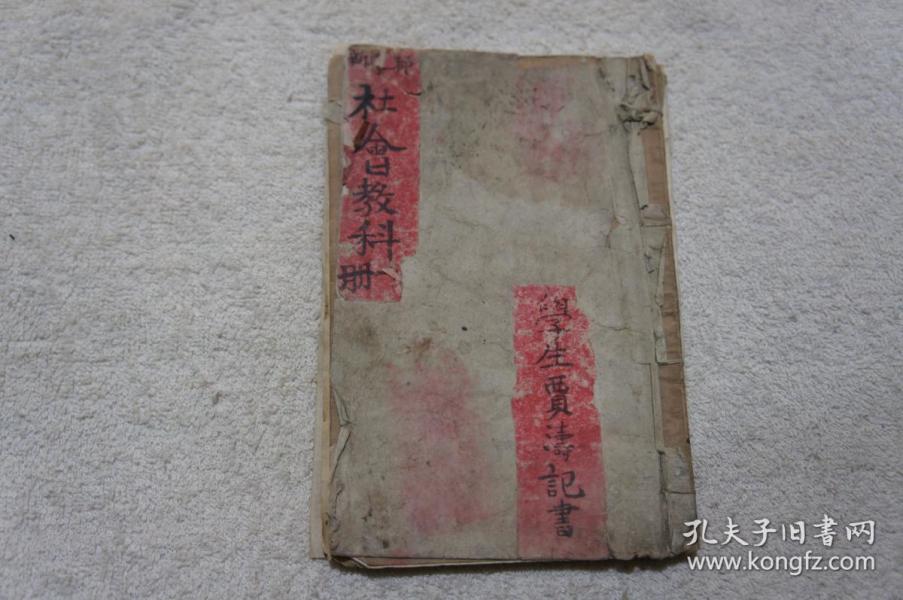 社會教科
册一
學生賈濤記書
孔夫子旧书网
www.kongfz.com